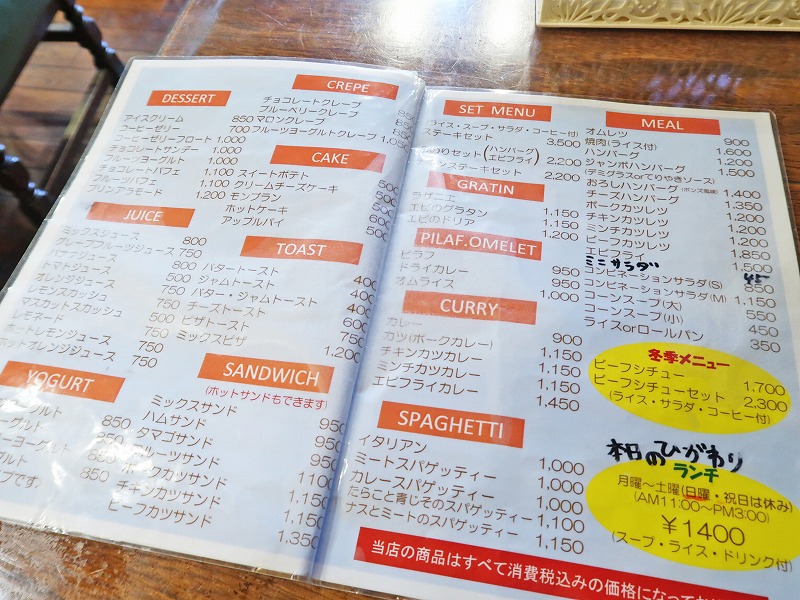 DESSERT
アイスクリーム 850
コーヒーゼリー 700
コーヒーゼリーフロート 1,000
チョコレートサンデー
フルーツヨーグルト 1,000
チョコレートパフェ 1,100
フルーツパフェ 1,100
プリンアラモード 1,200
JUICE
ミックスジュース 800
グレープフルーツジュース 750
バナナジュース
トマトジュース
オレンジジュース
レモンスカッシュ
マスカットスカッシュ
レモネード
ホットレモンジュース
ホットオレンジジュース 750
YOGURT
CREPE
チョコレートクレープ
ブルーベリークレープ
マロンクレープ
フルーツヨーグルトクレープ
CAKE
スイートポテト
クリームチーズケーキ
モンブラン
ホットケーキ
アップルパイ
TOAST
バタートースト
ジャムトースト
バター・ジャムトースト
チーズトースト
ピザトースト
ミックスピザ
SANDWICH
(ホットサンドもできます)
ミックスサンド
ハムサンド
タマゴサンド
フルーツサンド
ポークカツサンド
チキンカツサンド
ビーフカツサンド
SET MENU
(ライス・スープ・サラダ・コーヒー付)
ステーキセット 3,500
セット(ハンバーグ エビフライ) 2,200
ステーキセット 2,200
GRATIN
ラザニエ
エビのグラタン 1,150
エビのドリア 1,150
PILAF.OMELET
ピラフ 950
ドライカレー 950
オムライス 1,000
CURRY
カレー 900
カツ(ポークカレー) 1,150
チキンカツカレー 1,150
ミンチカツカレー 1,150
エビフライカレー 1,450
SPAGHETTI
イタリアン 1,000
ミートスパゲッティー 1,000
カレースパゲッティー 1,000
たらこと青じそのスパゲッティー 1,100
ナスとミートのスパゲッティー 1,150
MEAL
オムレツ 900
焼肉(ライス付) 1,600
ハンバーグ 1,200
ジャンボハンバーグ 1,500
(デミグラスorてりやきソース)
おろしハンバーグ(ポンズ風味) 1,400
チーズハンバーグ 1,350
ポークカツレツ 1,200
チキンカツレツ 1,200
ミンチカツレツ 1,200
ビーフカツレツ 1,850
フライ 1,500
ミニサラダ
コンビネーションサラダ(S) 850
コンビネーションサラダ(M) 1,150
コーンスープ(大) 550
コーンスープ(小) 450
ライスorロールパン 350
冬季メニュー
ビーフシチュー 1,700
ビーフシチューセット 2,300
(ライス・サラダ・コーヒー付)
本日のひがわり
ランチ
月曜～土曜(日曜・祝日は休み)
(AM11:00～PM3:00)
¥1400
(スープ・ライス・ドリンク付)
当店の商品はすべて消費税込みの価格になって